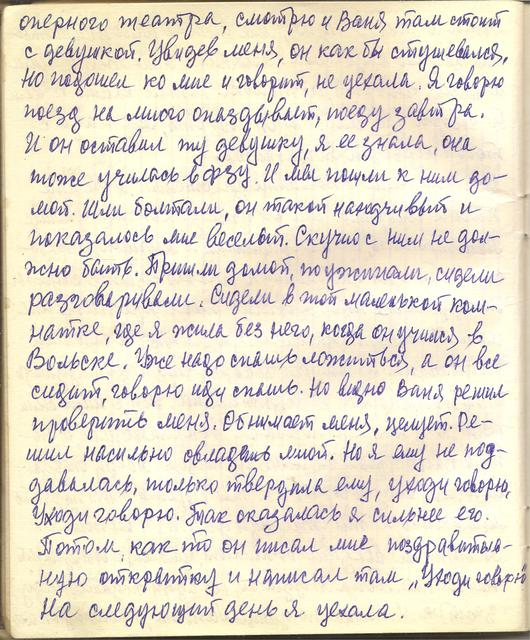 оперного театра, смотрю и Ваня там стоит
с девушкой. Увидев меня, он как бы стушевался,
но подошел ко мне и говорит, не уехала. Я говорю
поезд на много опаздывает, поеду завтра.
И он оставил ту девушку, я ее знала, она
тоже училась в ФЗУ. И мы пошли к ним до-
мой. Шли болтали, он такой находчивый и
показалось мне веселой. Скучно с ним не дол-
жно быть. Пришли домой, поужинали, сидели
разговаривали. Сидели в той маленькой ком-
натке, где я жила без него, когда он учился в
Вольске. Уже надо спать ложиться, а он все
сидит, говорю иди спать. Но видно Ваня решил
проверить меня. Обнимает меня, целует. Ре-
шил насильно овладеть мной. Но я ему не под-
давалась, только твердила ему, уходи говорю,
уходи говорю. Так оказалась я сильнее его.
Потом, как то он писал мне поздравитель-
ную открытку и написал там „Уходи говорю"
На следующий день я уехала.